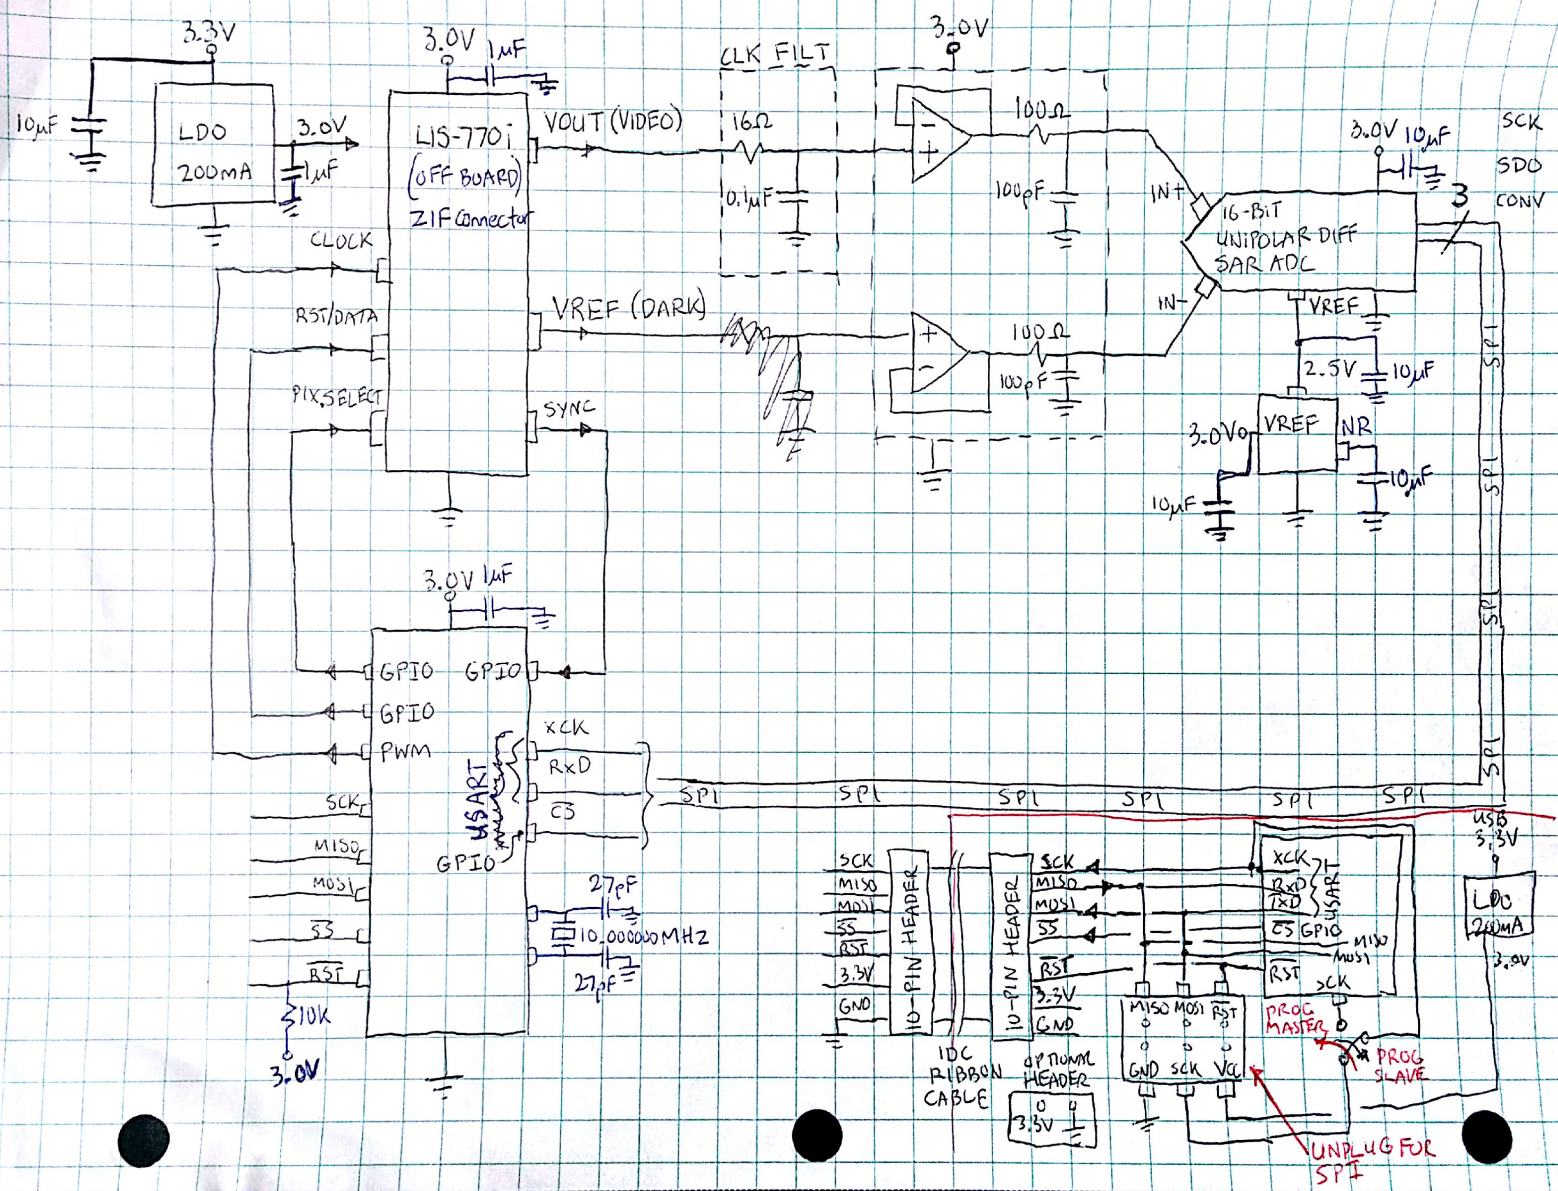 3.3V
10µF
LDO
200mA
3.0V
1µF
3.0V
1µF
LIS-770i
(OFF BOARD)
ZIF Connector
CLOCK
RST/DATA
PIX.SELECT
VOUT (VIDEO)
VREF (DARK)
SYNC
CLK FILT
16Ω
0.1µF
3.0V
100Ω
100pF
100Ω
100pF
IN+
IN-
3.0V
10µF
16-BIT
UNIPOLAR DIFF
SAR ADC
VREF
SCK
SDO
CONV
3
2.5V
10µF
3.0V
VREF
NR
10µF
10µF
SPI
SPI
SPI
SPI
3.0V
1µF
GPIO
GPIO
GPIO
PWM
XCK
RXD
CS
USART
GPIO
SCK
MISO
MOSI
SS
RST
10K
3.0V
27pF
10.000000MHZ
27pF
SPI
SPI
SPI
SPI
SPI
SPI
SCK
MISO
MOSI
SS
RST
3.3V
GND
10-PIN HEADER
IDC
RIBBON
CABLE
10-PIN HEADER
SCK
MISO
MOSI
SS
RST
3.3V
GND
OPTIONAL
HEADER
3.3V
XCK
RXD
TXD
USART
CS GPIO
MISO
MOSI
RST
SCK
MISO MOSI RST
GND SCK VCC
PROG
MASTER
PROG
SLAVE
UNPLUG FOR
SPI
USB
3.3V
LDO
200mA
3.0V